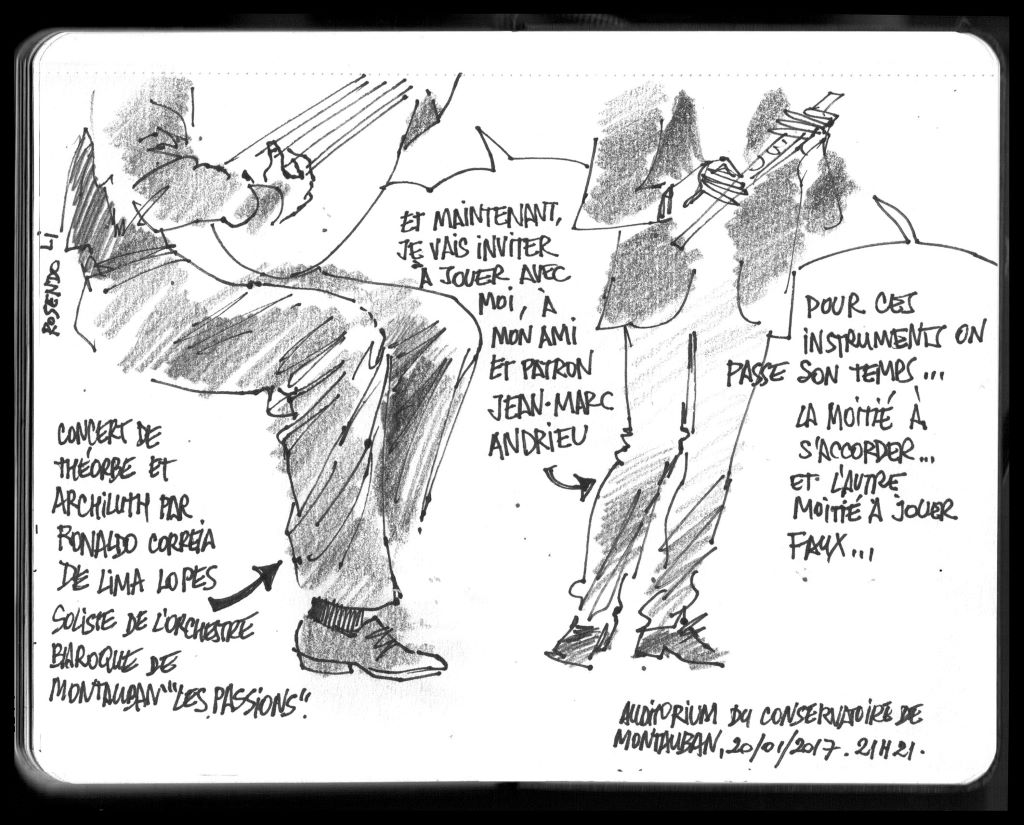 ROSENDO LI
ET MAINTENANT,
JE VAIS INVITER
À JOUER AVEC
MOI, À
MON AMI
ET PATRON
JEAN-MARC
ANDRIEU
POUR CES
INSTRUMENTS ON
PASSE SON TEMPS...
LA MOITIÉ À
S'ACCORDER...
ET L'AUTRE
MOITIÉ À JOUER
FAUX...
CONCERT DE
THÉORBE ET
ARCHILUTH PAR
RONALDO CORREIA
DE LIMA LOPES
SOLISTE DE L'ORCHESTRE
BAROQUE DE
MONTAUBAN "LES PASSIONS".
AUDITORIUM DU CONSERVATOIRE DE
MONTAUBAN, 20/01/2017. 21H21.